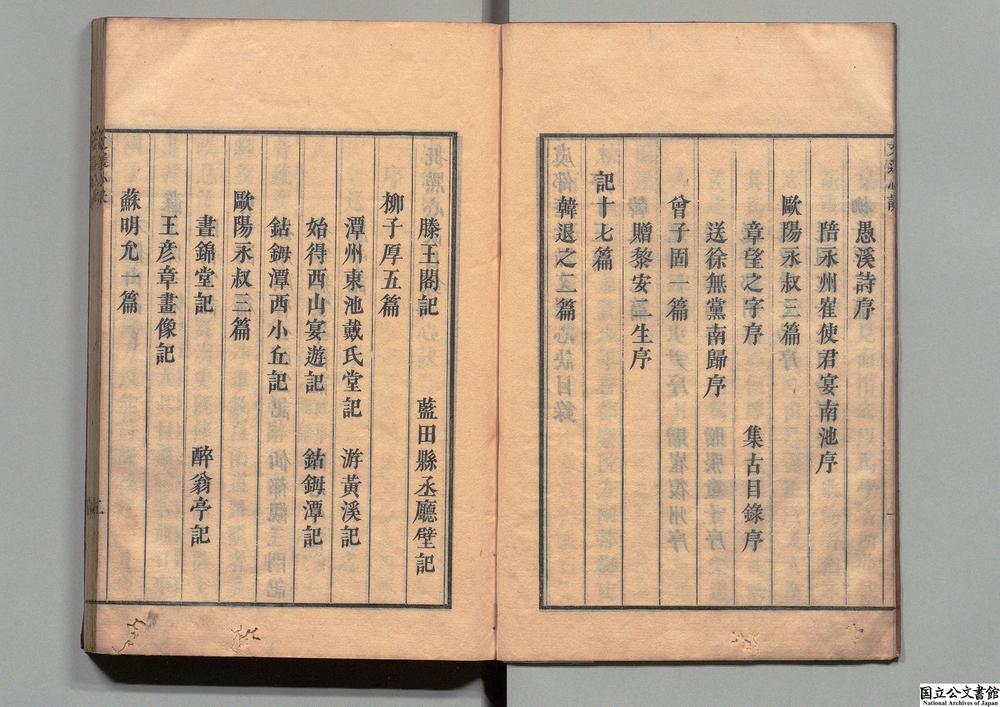 愚溪詩序
陪永州崔使君宴南池序
歐陽永叔三篇
章望之字序 集古目錄序
送徐無黨南歸序
曾子固一篇
贈黎安二生序
記十七篇
韓退之二篇
滕王閣記 藍田縣丞廳壁記
柳子厚五篇
潭州東池戴氏堂記 游黃溪記
始得西山宴遊記 鈷鉧潭記
鈷鉧潭西小丘記
歐陽永叔三篇
晝錦堂記 醉翁亭記
王彦章畫像記
蘇明允一篇
国立公文書館
National Archives of Japan